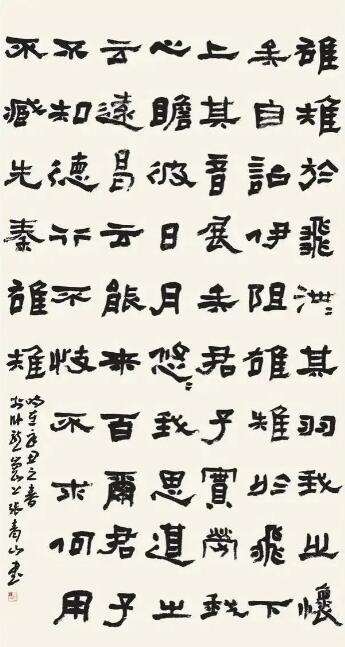 雄雉於飛泄〻其羽我之懷
矣自詒伊阻雄雉於飛下
上其音展矣君子實勞我
心瞻彼日月悠〻我思道之
云遠曷云能來百爾君子
不知德行不忮不求何用
不臧先秦雄雉
時在辛丑之春
張青山書